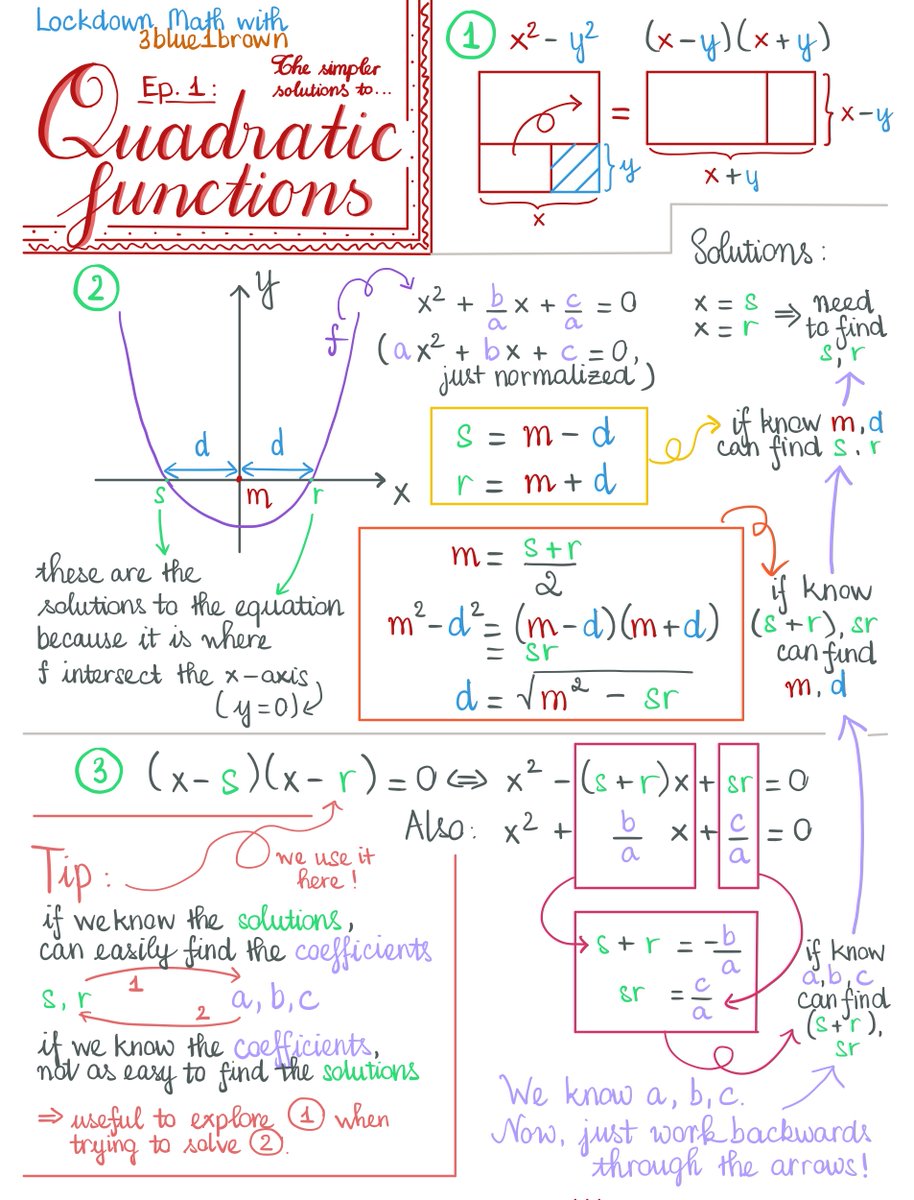 Lockdown Math with
3blue1brown
Ep. 1:
The simpler
solutions to...
Quadratic
functions
1
x² - y²
(x-y)(x+y)
=
y
x
x-y
x+y
2
y
f
d d
s m r x
these are the
solutions to the equation
because it is where
f intersect the x-axis
(y=0)
x² + b/a x + c/a = 0
(ax² + bx + c = 0,
just normalized)
s = m - d
r = m + d
m = s+r/2
m²-d² = (m-d)(m+d)
= sr
d = √m² - sr
Solutions:
x = s
x = r
⇒ need
to find
s, r
if know m,d
can find s.r
if know
(s+r), sr
can find
m, d
3
(x-s)(x-r) = 0 ⇔ x² - (s+r)x + sr = 0
Also: x² + b/a x + c/a = 0
s + r = -b/a
sr = c/a
if know
a,b,c
can find
(s+r),
sr
We know a, b, c.
Now, just work backwards
through the arrows!
Tip:
we use it
here!
if we know the solutions,
can easily find the coefficients
s, r 1 a, b, c
2
if we know the coefficients,
not as easy to find the solutions
⇒ useful to explore 1 when
trying to solve 2.